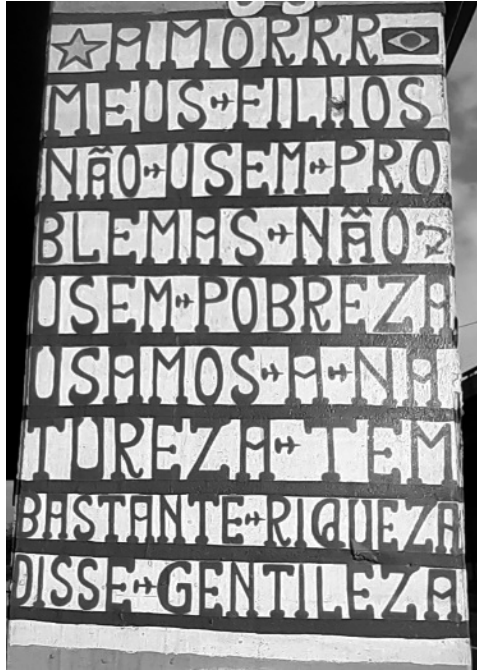 AMORRR
MEUS FILHOS
NÃO USEM PRO
BLEMAS NÃO
USEM POBREZA
USAMOS A NA
TUREZA TEM
BASTANTE RIQUEZA
DISSE GENTILEZA